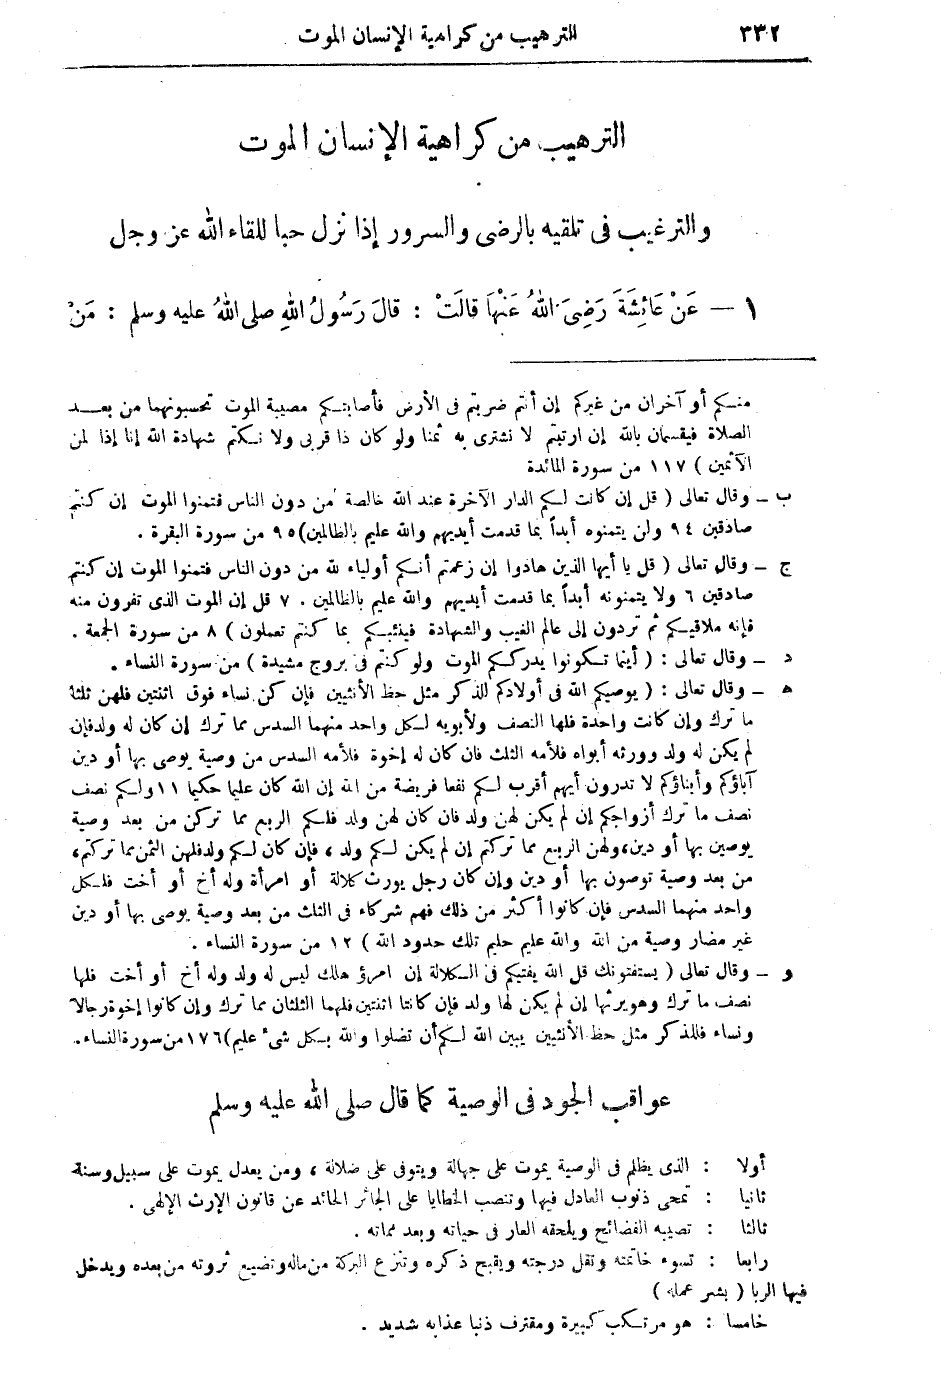 ٣٣٢ الترهيب من كراهية الإنسان الموت
الترهيب من كراهية الإنسان الموت
والترغيب فى تلقيه بالرضى والسرور إذا نزل حبا للقاء الله عز وجل
١ — عَنْ عَائِشَةَ رَضِىَ اللهُ عَنْهَا قَالَتْ : قَالَ رَسُولُ اللهِ صلى اللهُ عليه وسلم : مَنْ
منكم أو آخران من غيركم إن أنتم ضربتم فى الأرض فأصابتكم مصيبة الموت تحبسونهما من بعد
الصلاة فيقسمان بالله إن ارتبتم لا نشترى به ثمنا ولو كان ذا قربى ولا نكتم شهادة الله إنا إذا لمن
الآثمين ) ١١٧ من سورة المائدة
ب ـ وقال تعالى ( قل إن كانت لكم الدار الآخرة عند الله خالصة من دون الناس فتمنوا الموت إن كنتم
صادقين ٩٤ ولن يتمنوه أبداً بما قدمت أيديهم والله عليم بالظالمين) ٩٥ من سورة البقرة .
ج ـ وقال تعالى ( قل يا أيها الذين هادوا إن زعمتم أنكم أولياء لله من دون الناس فتمنوا الموت إن كنتم
صادقين ٦ ولا يتمنونه أبداً بما قدمت أيديهم والله عليم بالظالمين . ٧ قل إن الموت الذى تفرون منه
فإنه ملاقيكم ثم تردون إلى عالم الغيب والشهادة فينبئكم بما كنتم تعملون ) ٨ من سورة الجمعة .
د ـ وقال تعالى : ( أينما تكونوا يدرككم الموت ولو كنتم فى بروج مشيدة ) من سورة النساء .
ه ـ وقال تعالى : ( يوصيكم الله فى أولادكم للذكر مثل حظ الأنثيين فإن كن نساء فوق اثنتين فلهن ثلثا
ما ترك وإن كانت واحدة فلها النصف ولأبويه لكل واحد منهما السدس مما ترك إن كان له ولدفإن
لم يكن له ولد وورثه أبواه فلأمه الثلث فان كان له إخوة فلأمه السدس من وصية يوصى بها أو دين
آباؤكم وأبناؤكم لا تدرون أيهم أقرب لكم نفعا فريضة من الله إن الله كان عليما حكيما ١١ ولكم نصف
نصف ما ترك أزواجكم إن لم يكن لهن ولد فان كان لهن ولد فلكم الربع مما تركن من بعد وصية
يوصين بها أو دين، ولهن الربع مما تركتم إن لم يكن لكم ولد ، فإن كان لكم ولدفلهن الثمن مما تركتم،
من بعد وصية توصون بها أو دين وإن كان رجل يورث كلالة أو امرأة وله أخ أو أخت فلكل
واحد منهما السدس فإن كانوا أكثر من ذلك فهم شركاء فى الثلث من بعد وصية يوصى بها أو دين
غير مضار وصية من الله والله عليم حليم تلك حدود الله ) ١٢ من سورة النساء .
و ـ وقال تعالى ( يستفتونك قل الله يفتيكم فى الكلالة إن امرؤ هلك ليس له ولد وله أخ أو أخت فلها
نصف ما ترك وهويرثها إن لم يكن لها ولد فإن كانتا اثنتين فلهما الثلثان مما ترك وإن كانوا إخوةرجالا
ونساء فللذكر مثل حظ الأنثيين يبين الله لكم أن تضلوا والله بكل شئ عليم) ١٧٦ من سورة النساء.
عواقب الجود فى الوصية كما قال صلى الله عليه وسلم
أولا : الذى يظلم فى الوصية يموت على جهالة ويتوفى على ضلالة ، ومن يعدل يموت على سبيل وسنة
ثانيا : تمحى ذنوب العادل فيها وتنصب الخطايا على الجائر الحائد عن قانون الإرث الإلهى .
ثالثا : تصيبه الفضائح ويلحقه العار فى حياته وبعد مماته .
رابعا : تسوء خاتمته وتقل درجته ويقبح ذكره وتنزع البركة من ماله وتضييع ثروته من بعده ويدخل
فيها الربا ( بشر عمله )
خامسا : هو مرتكب كبيرة ومقترف ذنبا عذابه شديد .